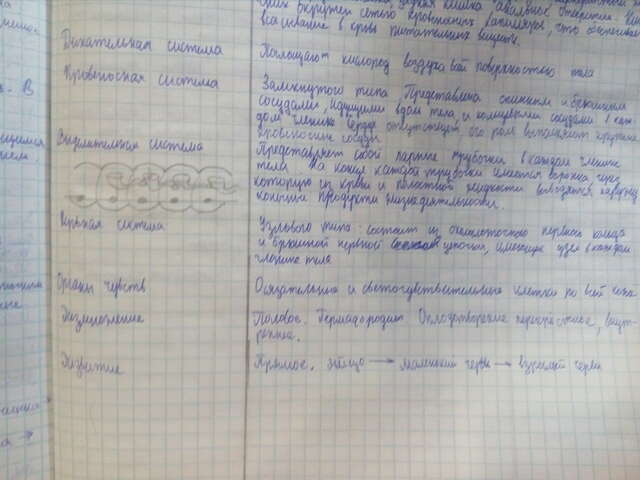 задняя кишка анальное отверстие.
Кишк окружен сетью кровеносных капилляров, что обеспечивает
всасывание в кровь питательных веществ.
Дыхательная система
Поглощают кислород воздуха всей поверхностью тела
Кровеносная система
Замкнутого типа. Представлена спинным и брюшным
сосудами, идущими вдоль тела, и кольцевыми сосудами в каж-
дом членике. Сердце отсутствует, его роль выполняют крупные
кровеносные сосуды
Выделительная система
Представляет собой парные трубочки в каждом членике
тела. На конце каждой трубочки имеется воронка через
которую из крови и полостной жидкости выводятся наружу
конечные продукты жизнедеятельности.
Нервная система
Узлового типа: состоит из окологлоточного нервного кольца
и брюшной нервной цепочки, имеющие узел в каждом
членике тела
Органы чувств
Осязательные и светочувствительные клетки по всей коже
Размножение
Половое. Гермафродиты. Оплодотворение перекрестное, внут-
реннее.
Развитие
Прямое. яйцо → маленький червь → взрослый червь